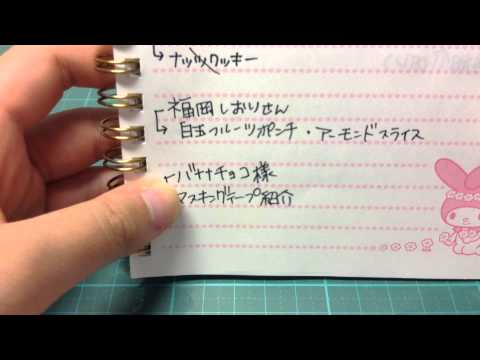 →ナッツクッキー
福岡しおりさん
→白玉フルーツポンチ・アーモンドスライス
バナナチョコ様
マスキングテープ紹介